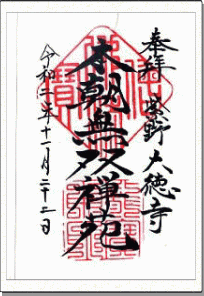 奉拝 紫野 大徳寺
本朝無双禅苑
令和二年十一月二十二日